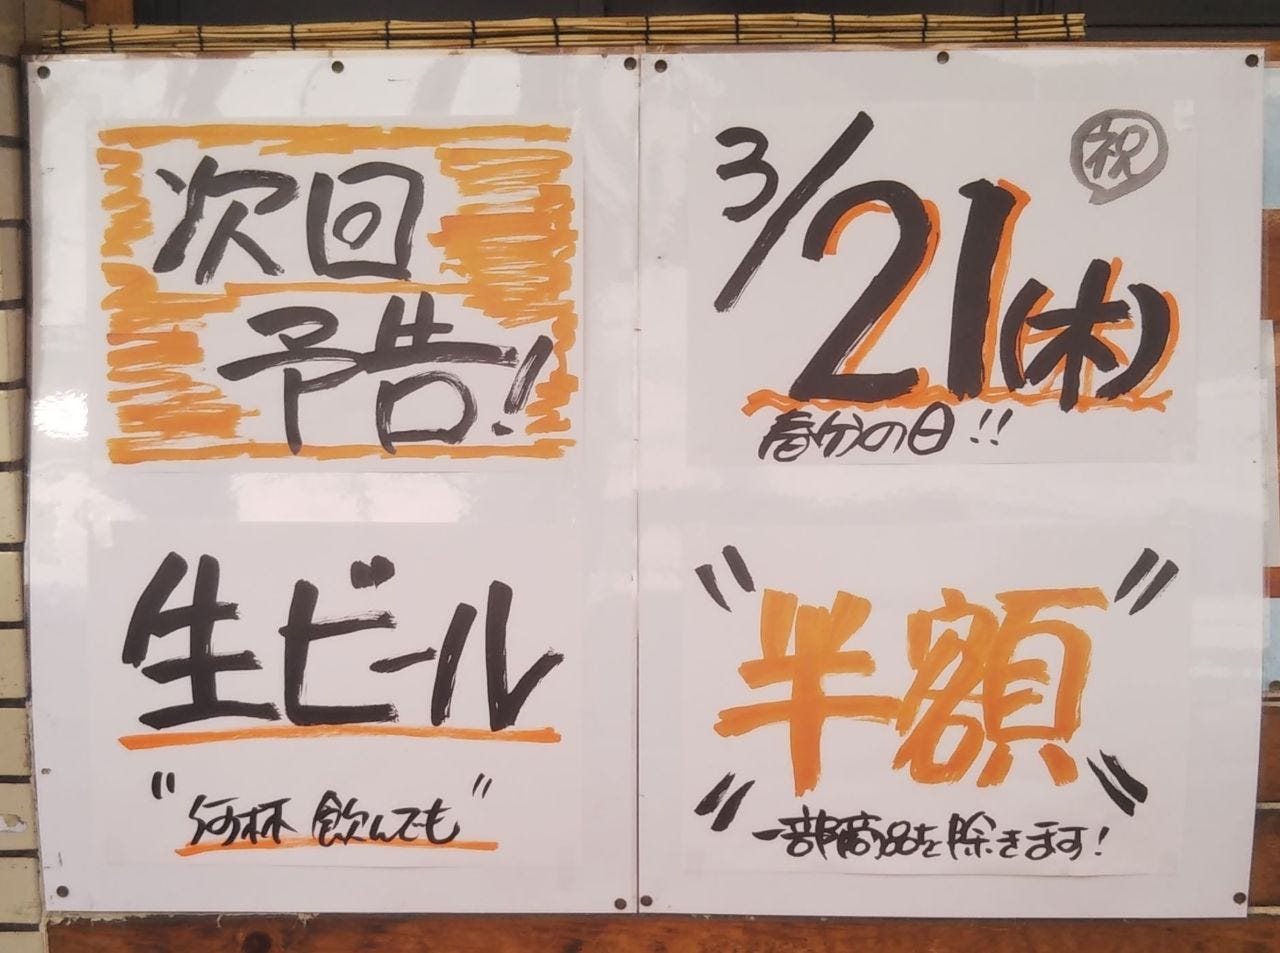 次回
予告!
3/21(木)
祝
春分の日!!
生ビール
"何杯 飲んでも"
"半額"
一部商品を除きます!